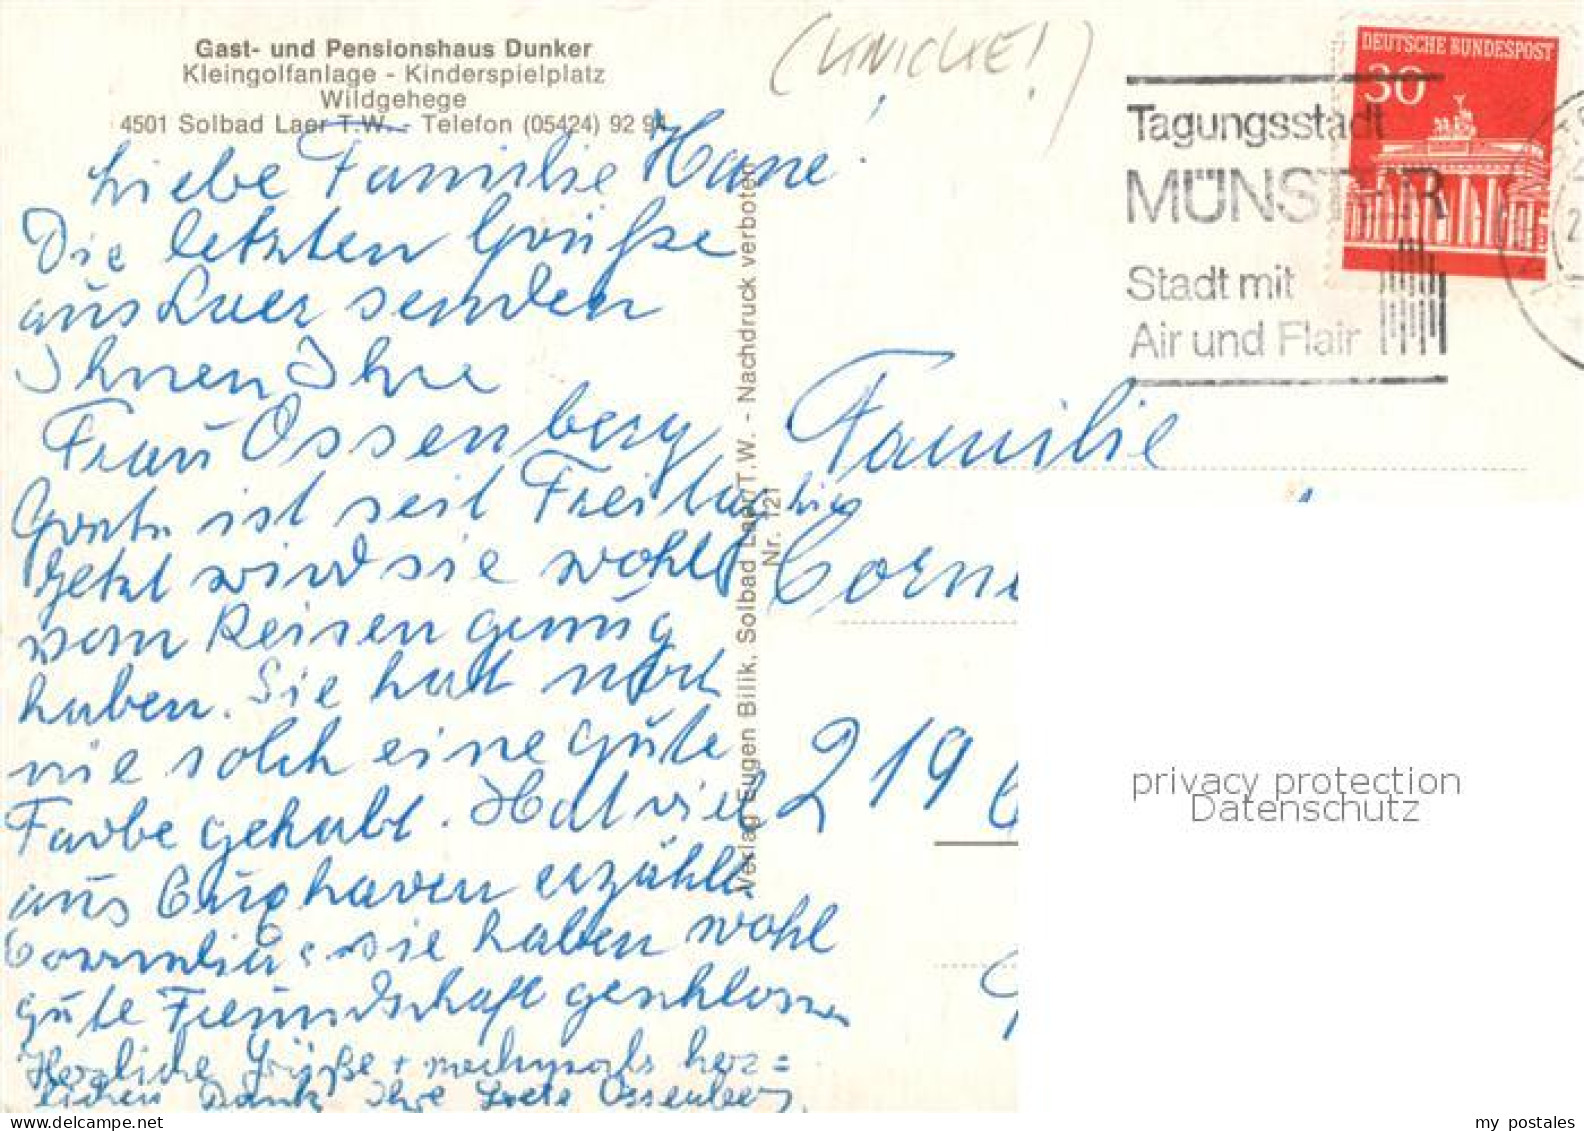 Gast- und Pensionshaus Dunker
Kleingolfanlage - Kinderspielplatz
Wildgehege
4501 Solbad Laer T.W. - Telefon (05424) 92 94
(KNICKE!)
DEUTSCHE BUNDESPOST
30
Tagungsstadt
MÜNSTER
Stadt mit
Air und Flair
Liebe Familie Hane!
Die letzten Grüße
aus Laer senden
Ihnen Ihre
Frau Ossenberg
ist seit Freitag hier
Jetzt wird sie wohl
vom Reisen genug
haben. Sie hat noch
nie solch eine gute
Farbe gehabt. Hat viel
aus Cuxhaven erzählt.
sie haben wohl
gute Freundschaft geschlossen
Herzliche Grüße + nochmals herz=
lichen Dank Ihre Grete Ossenberg
Verlag Eugen Bilik, Solbad Laer T.W. - Nachdruck verboten
Nr. 121
Familie
Corne
219
privacy protection
Datenschutz
my postales